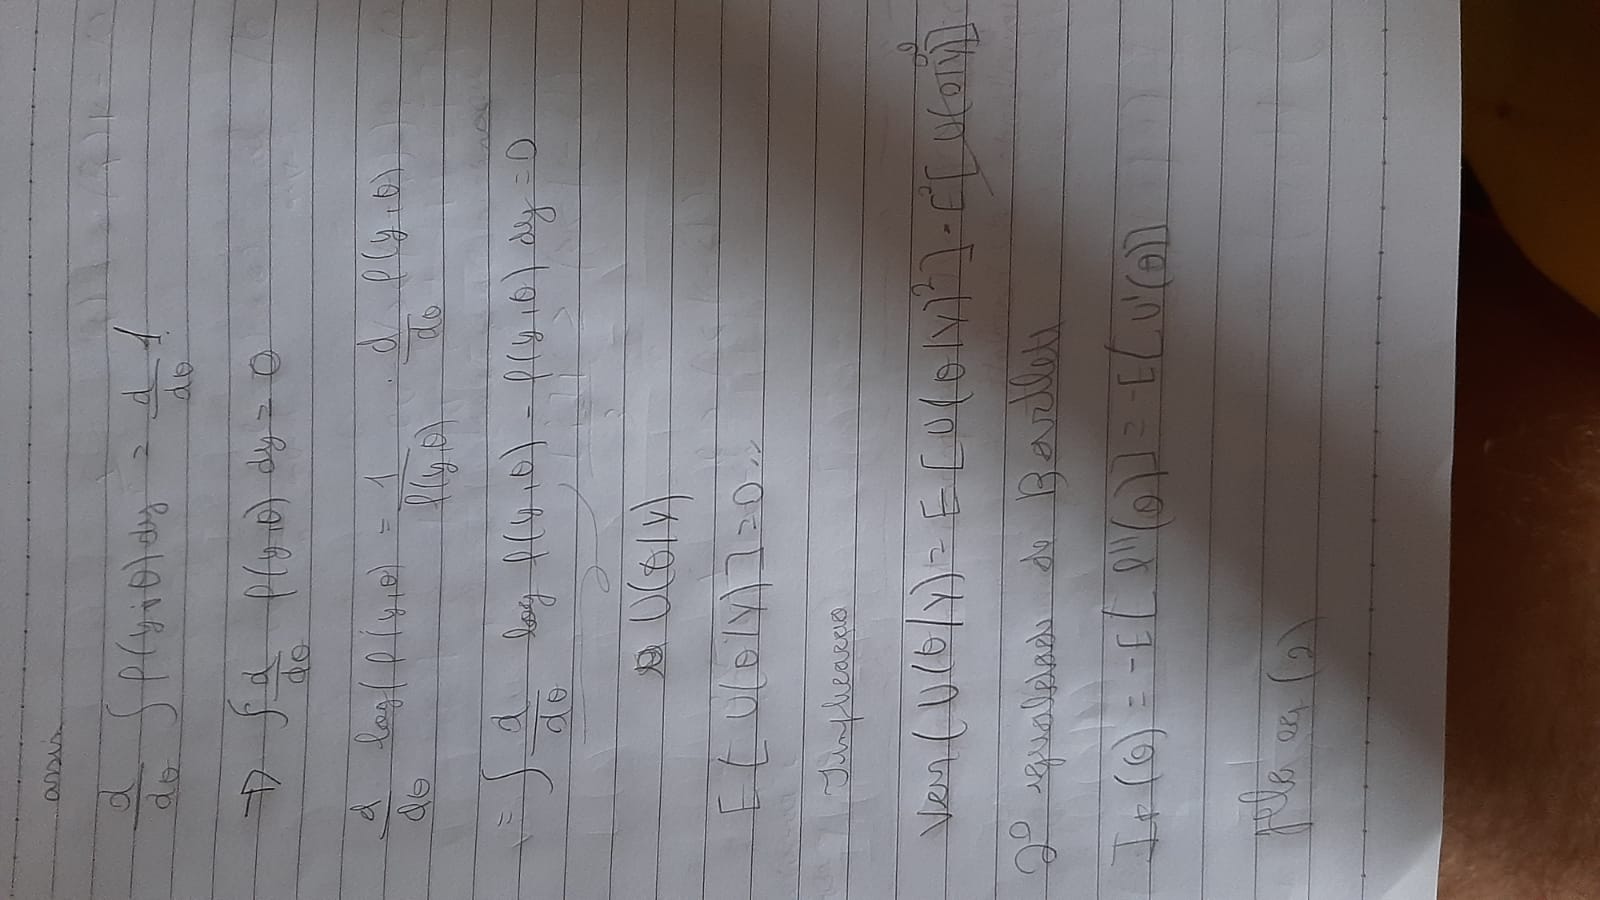 assim
d/dθ ∫ f(y;θ) dy = d/dθ 1
⇒ ∫ d/dθ f(y,θ) dy = 0
d/dθ log(f(y,θ) = 1/f(y,θ) · d/dθ f(y,θ)
= ∫ d/dθ log f(y,θ) - f(y,θ) dy = 0
U(θ|Y)
E[U(θ|Y)] = 0
Implicacao
Var(U(θ|Y) = E[U(θ|Y)²] - E²[U(θ|Y)]
2º igualdade de Bartlett
(θ) = -E[l''(θ)] = -E[U'(θ)]
pela eq (2)